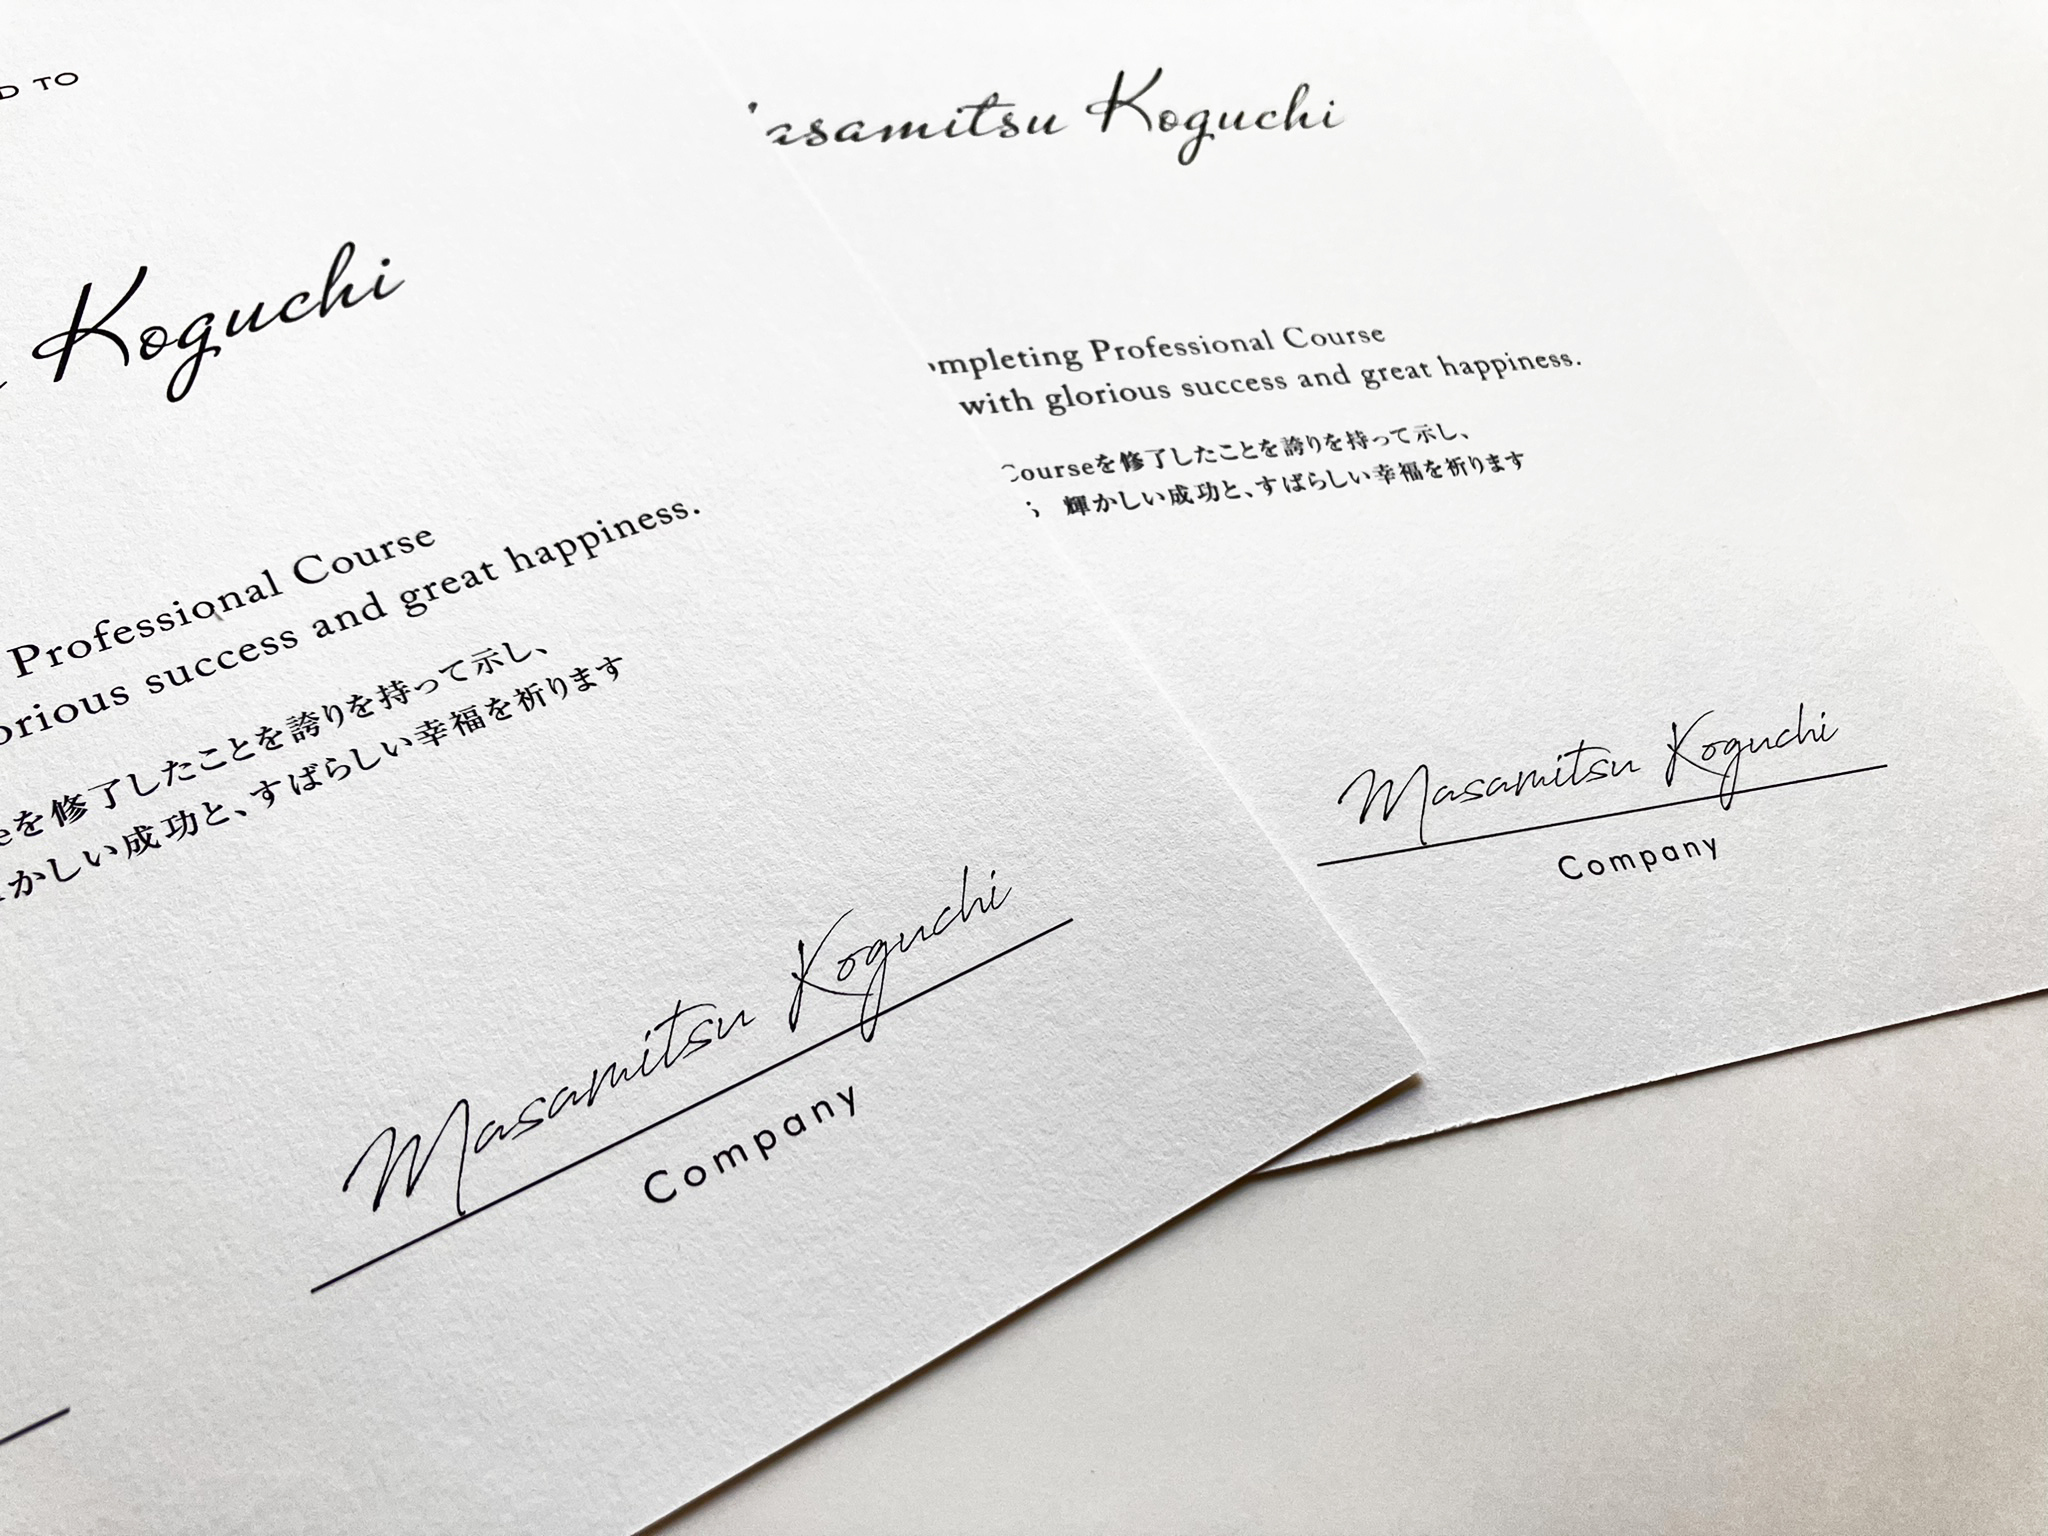 TO
Koguchi
Professional Course
success and great happiness.
を修了したことを誇りを持って示し、
かしい成功と、すばらしい幸福を祈ります
Masamitsu Koguchi
Company
Koguchi
Professional Course
with glorious success and great happiness.
Courseを修了したことを誇りを持って示し、
輝かしい成功と、すばらしい幸福を祈ります
Masamitsu Koguchi
Company